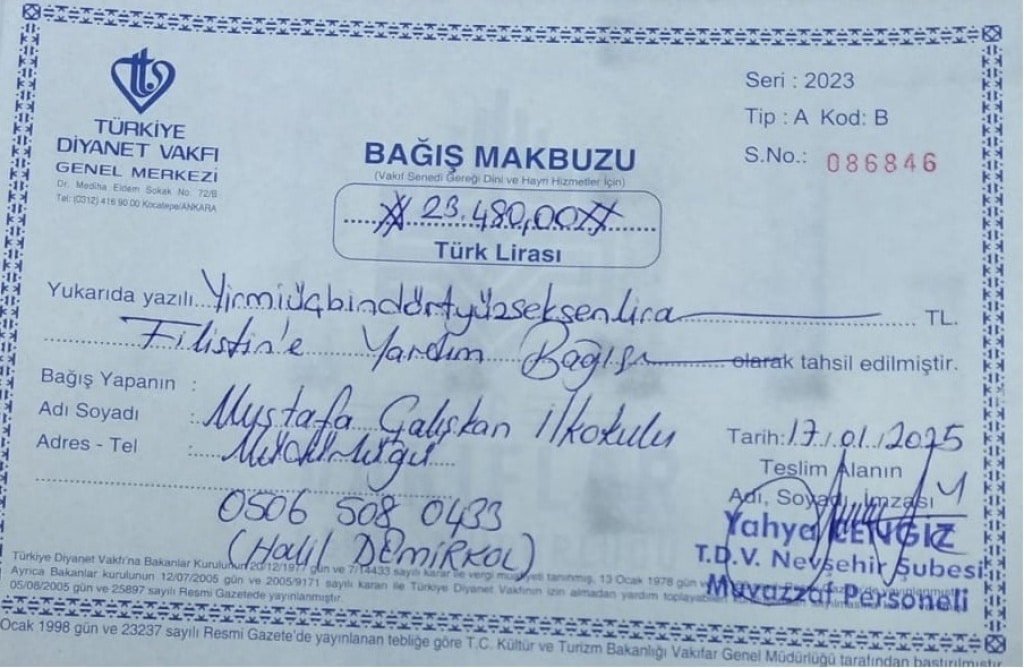 TÜRKİYE
DİYANET VAKFI
GENEL MERKEZİ
Dr. Mediha Eldem Sokak No. 72/B
Tel: (0312) 416 90 00 Kocatepe/ANKARA
Seri : 2023
Tip : A Kod: B
S.No.: 086846
BAĞIŞ MAKBUZU
(Vakıf Senedi Gereği Dini ve Hayri Hizmetler İçin)
23.480,00
Türk Lirası
Yukarıda yazılı Yirmiüçbindörtyüzseksenlira TL.
Filistin'e Yardım Bağışı olarak tahsil edilmiştir.
Bağış Yapanın :
Adı Soyadı : Mustafa Çalışkan İlkokulu
Adres - Tel : Müdürlüğü
0506 508 0433
(Halil DEMİRKOL)
Tarih: 17/01/2025
Teslim Alanın
Adı, Soyadı, İmzası
Yahya CENGİZ
T.D.V. Nevşehir Şubesi
Muvazzaf Personeli
Türkiye Diyanet Vakfı'na Bakanlar Kurulunun 20/12/1977 gün ve 7/14433 sayılı karar ile vergi muafiyeti tanınmış, 13 Ocak 1978 gün
Ayrıca Bakanlar kurulunun 12/07/2005 gün ve 2005/9171 sayılı kararı ile Türkiye Diyanet Vakfının izin almadan yardım toplayabilen
05/08/2005 gün ve 25897 sayılı Resmi Gazetede yayınlanmıştır.
Ocak 1998 gün ve 23237 sayılı Resmi Gazete'de yayınlanan tebliğe göre T.C. Kültür ve Turizm Bakanlığı Vakıflar Genel Müdürlüğü tarafından bastırılmıştır.